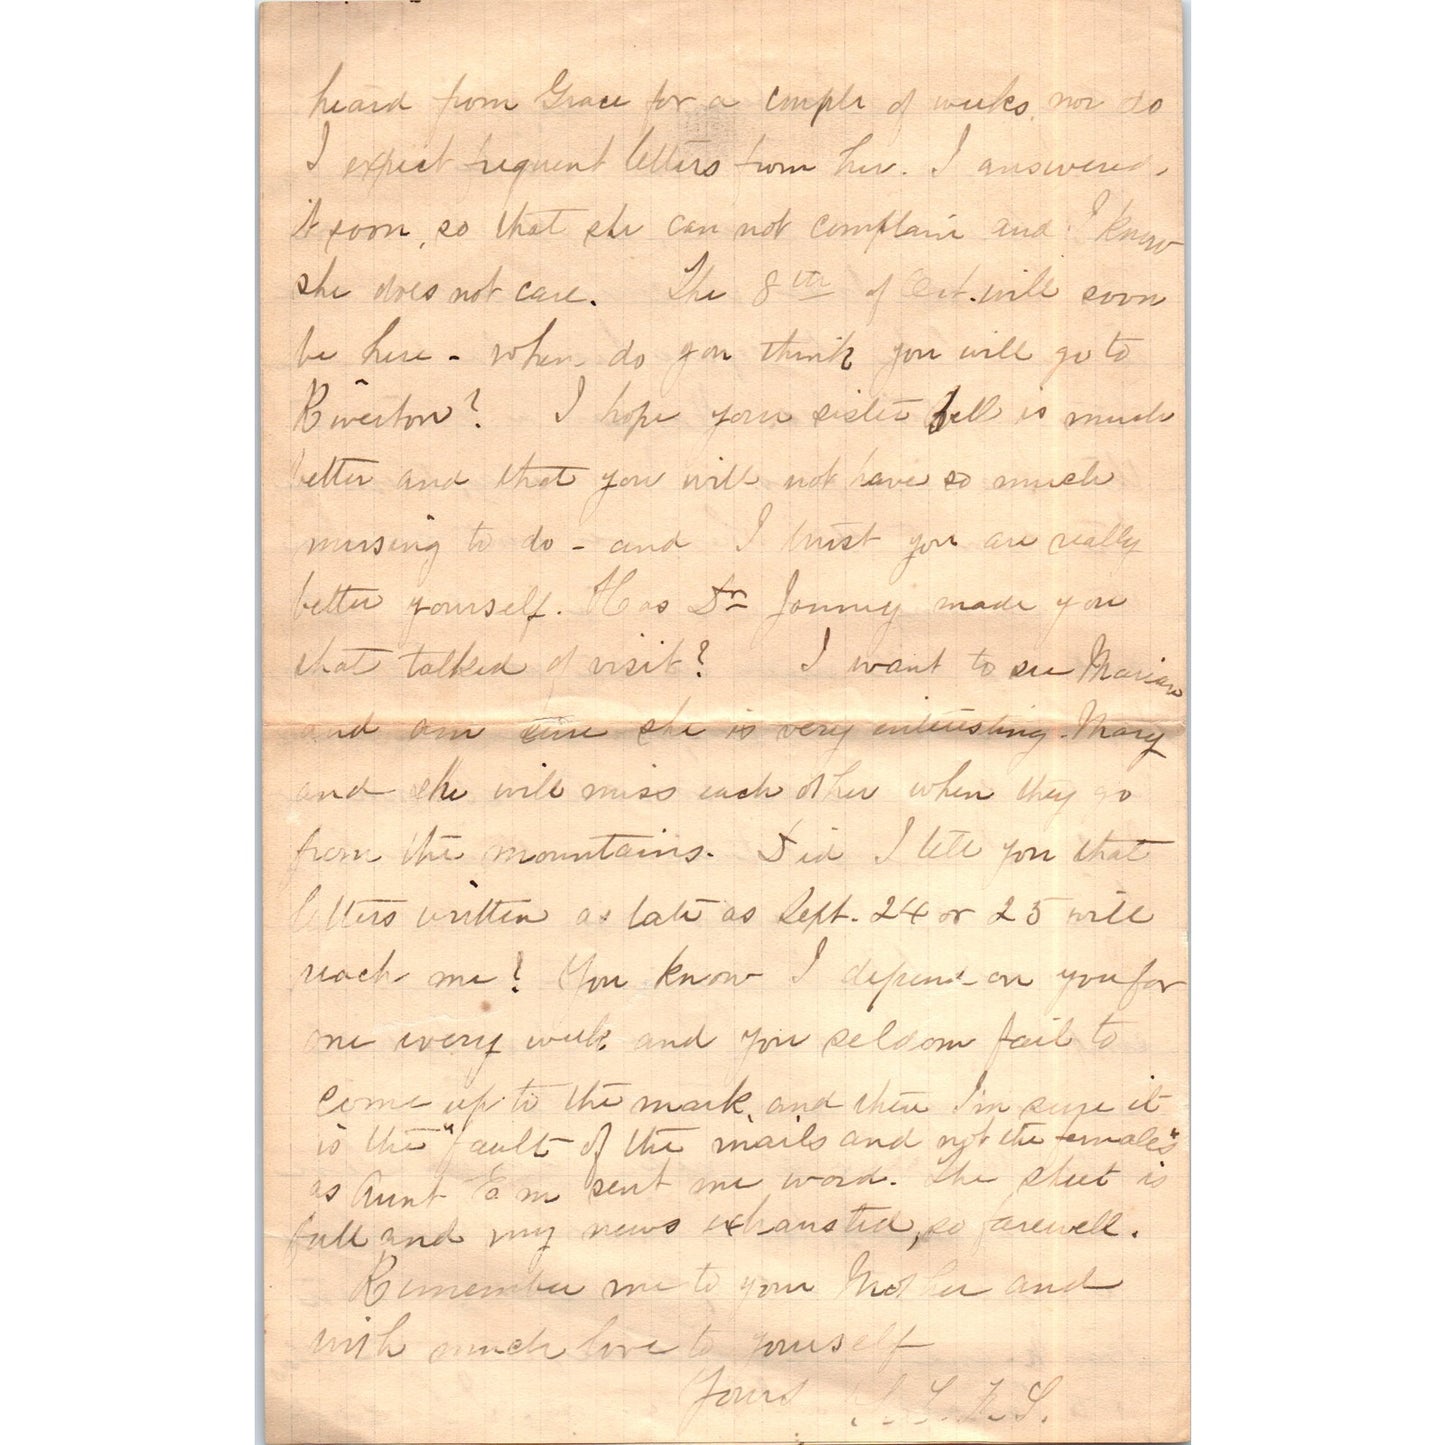 heard from Grace for a couple of weeks, nor do
I expect frequent letters from her. I answered
it soon, so that she can not complain and I know
she does not care. The 8th of Oct. will soon
be here - when do you think you will go to
Riverton? I hope your sister Bell is much
better and that you will not have so much
nursing to do - and I trust you are really
better yourself. Has Dr Janney made you
that talked of visit? I want to see Marian
and am sure she is very interesting. Mary
and she will miss each other when they go
from the mountains. Did I tell you that
letters written as late as Sept. 24 or 25 will
reach me? You know I depend on you for
one every week and you seldom fail to
come up to the mark, and then I'm sure it
is the "fault of the mails and not the females"
as Aunt Em sent me word. The sheet is
full and my news exhausted, so farewell.
Remember me to your Mother and
with much love to yourself
Yours